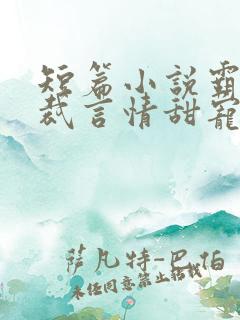 短篇小說霸
裁言情甜寵
萨凡特-巴伯
未经同意禁止转载